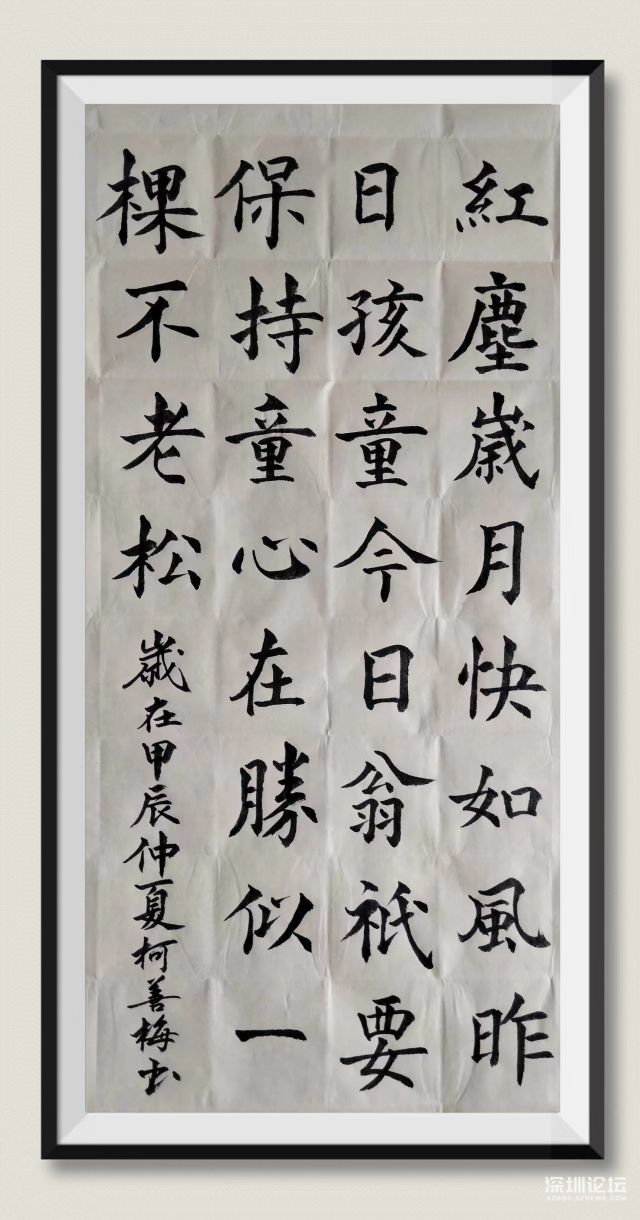 紅塵歲月快如風昨
日孩童今日翁祇要
保持童心在勝似一
棵不老松
歲在甲辰仲夏柯善梅书
深圳论坛
SZBBS.SZNEWS.COM